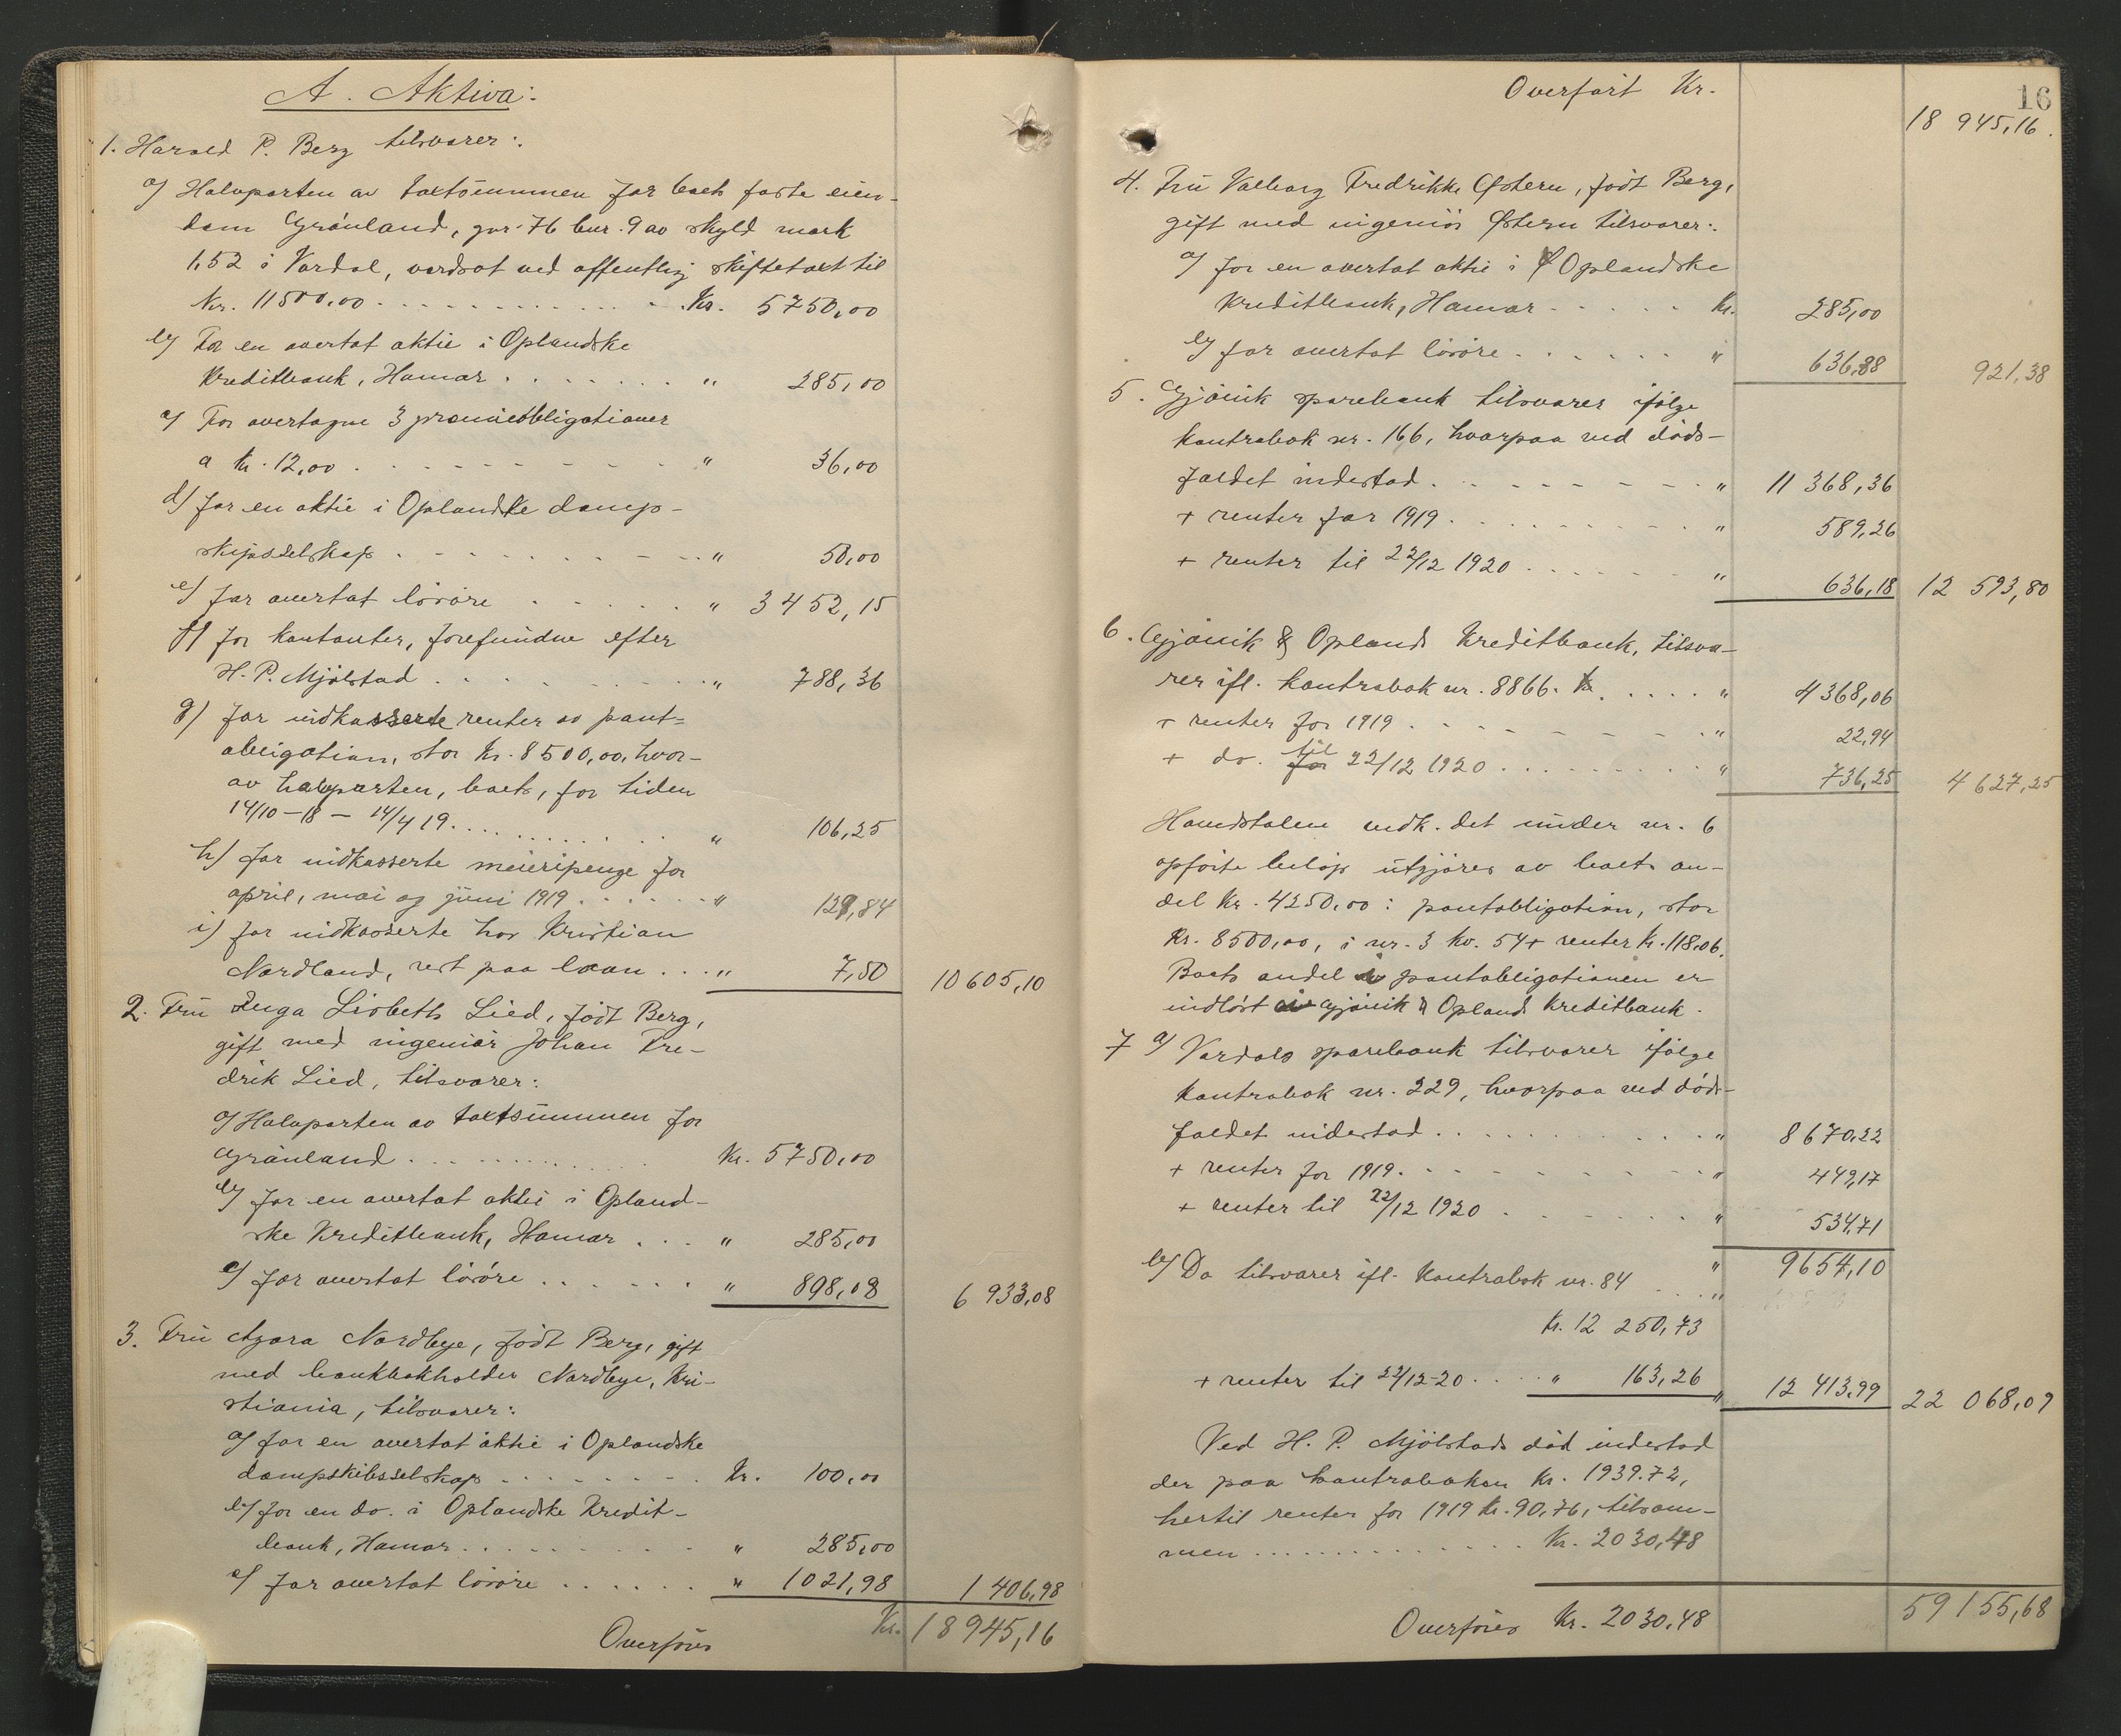 A. Aktiva:
1. Harald P. Berg tilsvarer:
a) Halvparten av taxtsummen for boets faste eien-
dom Grønland, gnr. 76 bnr. 9 av skyld mark
1,52 i Vardal, verdsat ved offentlig skiftetaxt til
Kr. 11500,00 . . . . Kr. 5750,00
b) For en overtat aktie i Oplandske
Kreditbank, Hamar . . . . " 285,00
c) For overtagne 3 præmieobligationer
a kr. 12,00 . . . . " 36,00
d) for en aktie i Oplandske damp-
skipsselskap . . . . " 50,00
e) for overtat løsøre . . . . " 3452,15
f) for kontanter, forefundne efter
H. P. Mjölstad . . . . " 788,36
g) for indkasserte renter av pant-
obligation, stor kr. 8500,00, hvor-
av halvparten, boets, for tiden
14/10-18 – 14/4 19. . . . . " 106,25
h) for indkasserte meieripenge for
april, mai og juni 1919 . . . . " 129,84
i) for indkasserte hos Kristian
Nordland, rest paa laan . . . " 7,50 10605,10
2. Fru Inga Lisbeth Lied, født Berg,
gift med ingeniør Johan Fre-
drik Lied, tilsvarer:
a) Halvparten av taxtsummen for
Grønland . . . . Kr. 5750,00
b) for en overtat aktie i Opland-
ske Kreditbank, Hamar . . . " 285,00
c) for overtat løsøre . . . . " 898,08 6 933,08
3. Fru Agora Nordbye, født Berg, gift
med bankbokholder Nordbye, Kri-
stiania, tilsvarer:
a) for en overtat aktie i Oplandske
dampskibsselskap . . . . Kr. 100,00
b) for en do. i Oplandske Kredit-
bank, Hamar . . . . " 285,00
c) for overtat løsøre . . . . " 1021,98 1 406,98
Overføres Kr. 18945,16
16
Overført Kr. 18 945,16.
4. Fru Valborg Fredrikke Østern, født Berg,
gift med ingeniør Østern tilsvarer:
a) for en overtat aktie i Oplandske
Kreditbank, Hamar . . . . Kr. 285,00
b) for overtat løsøre . . . . " 636,38 921,38
5. Gjøvik sparebank tilsvarer ifølge
kontrabok nr. 166, hvorpaa ved døds-
faldet indestod . . . . " 11 368,36
+ renter for 1919 . . . . " 589,26
+ renter til 22/12 1920 . . . . " 636,18 12 593,80
6. Gjøvik & Oplands Kreditbank, tilsva-
rer ifl. kontrabok nr. 8866. Kr. . . . . " 4 368,06
+ renter for 1919 . . . . " 22,94
+ do. for til 22/12 1920 . . . . " 736,25 4 627,25
Hovedstolen indk. det under nr. 6
opførte beløp utgjøres av boets an-
del Kr. 4250,00 i pantobligation, stor
Kr. 8500,00, i nr. 3 kv. 54 + renter kr. 118,06.
Boets andel i pantobligationen er
indløst i Gjøvik & Oplands Kreditbank.
7 a) Vardals sparebank tilsvarer ifølge
kontrabok nr. 229, hvorpaa ved døds-
faldet indestod . . . . " 8 670,22
+ renter for 1919. . . . . " 449,17
+ renter til 22/12 1920 . . . . " 534,71
" 9654,10
b) Do tilsvarer ifl. kontrabok nr. 84 . . . "
Kr. 12 250,73
+ renter til 22/12-20 . . . . " 163,26 " 12 413,99 22 068,09
Ved H. P. Mjölstads död indestod
der paa kontraboken kr. 1939.72,
hertil renter for 1919 kr. 90,76, tilsam-
men . . . . Kr. 2030,48
Overføres Kr. 2030,48 59155,68